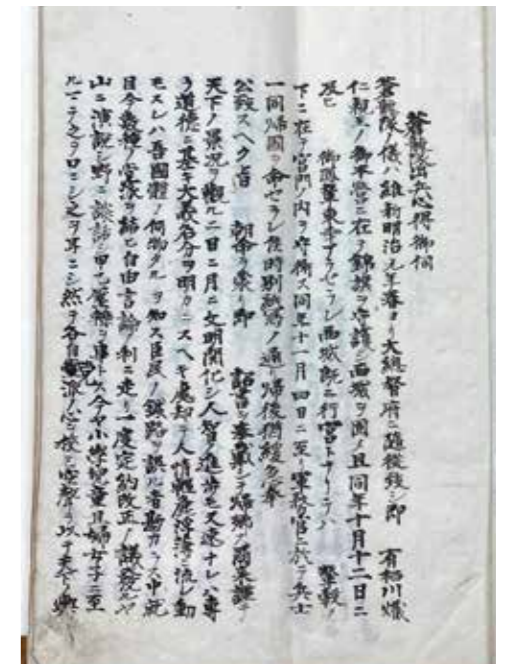 蒼龍隊出兵心得御伺
蒼龍隊儀ハ維新明治元年春ヨリ大總督府ニ隨從殘シ即 有栖川熾
仁親王ノ御本營ニ在テ錦旗ヲ守護シ西城ヲ固ノ且同年十月十二日ニ
及ヒ 御遷輦東幸アラセラレ西城既ニ行宮トナリテハ 輦轂ノ
下ニ在テ宮門内ヲ守衛ス同年十一月四日ニ至リ軍務官ニ於テ兵士
一同歸國ヲ命セラレ後時別紙寫ノ通リ歸後猶緩急奉
公致スヘク旨 朝命ヲ蒙リ即 詔書ヲ奉戴シ歸郷ス爾来謹テ
天下ノ景況ヲ觀ルニ日ニ月ニ文明開化シ人智ノ進歩モ又速ナレハ専
ラ道德ニ基キ大義名分ヲ明カニスヘキ處却テ人情輕薄浮蕩ニ流レ動
モスレハ吾國體ノ何物タルヲ知ス臣民ノ鐵路ヲ誤ル者尠カラス中就
目今幾種ノ黨派ヲ結ヒ自由言論ノ利ニ走リ一度定約改正ノ議發スルヤ
山ニ演説シ野ニ談話シ甲乙 轉ヲ事トス今ヤ小學兒童且婦女子ニ至
ルマテ之ヲ口ニシ之ヲ耳ニシ然ヲ各自 派ノ心ヲ挾ミ空 ヲ以テ天下ノ興